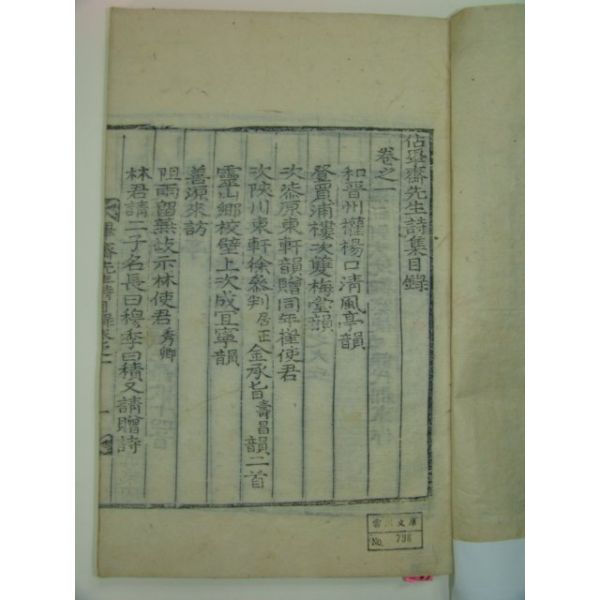 佔畢齋先生詩集目錄
卷之一
和晉州權楊口清風亭韻
登買浦樓次雙梅堂韻
次漆原東軒韻贈同年權使君
次陜川東軒徐參判居正金承旨壽昌韻二首
靈山鄉校壁上次成宜寧韻
善源來訪
阻雨留無政示林使君秀卿
林君請二子名長曰穆季曰積又請贈詩
畢齋先生詩目錄卷之一
文庫
No. 798